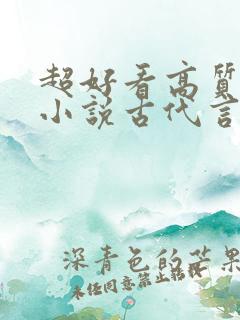 超好看高质
小说古代言
深青色的芒果
未经同意禁止转载